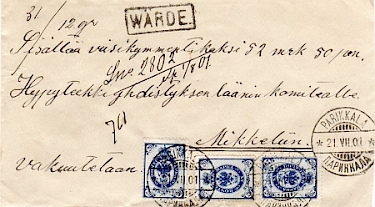 31/12 gr
WÄRDE.
Sisältää viisikymmentäkaksi 52 mrk 50/ooo.
Lw. 2802
Hypoteekkiyhdistyksen läänin komitealle.
Mikkeliin.
vakuutetaan.
PARIKKALA
21.VII.01
ПАРИККАЛА